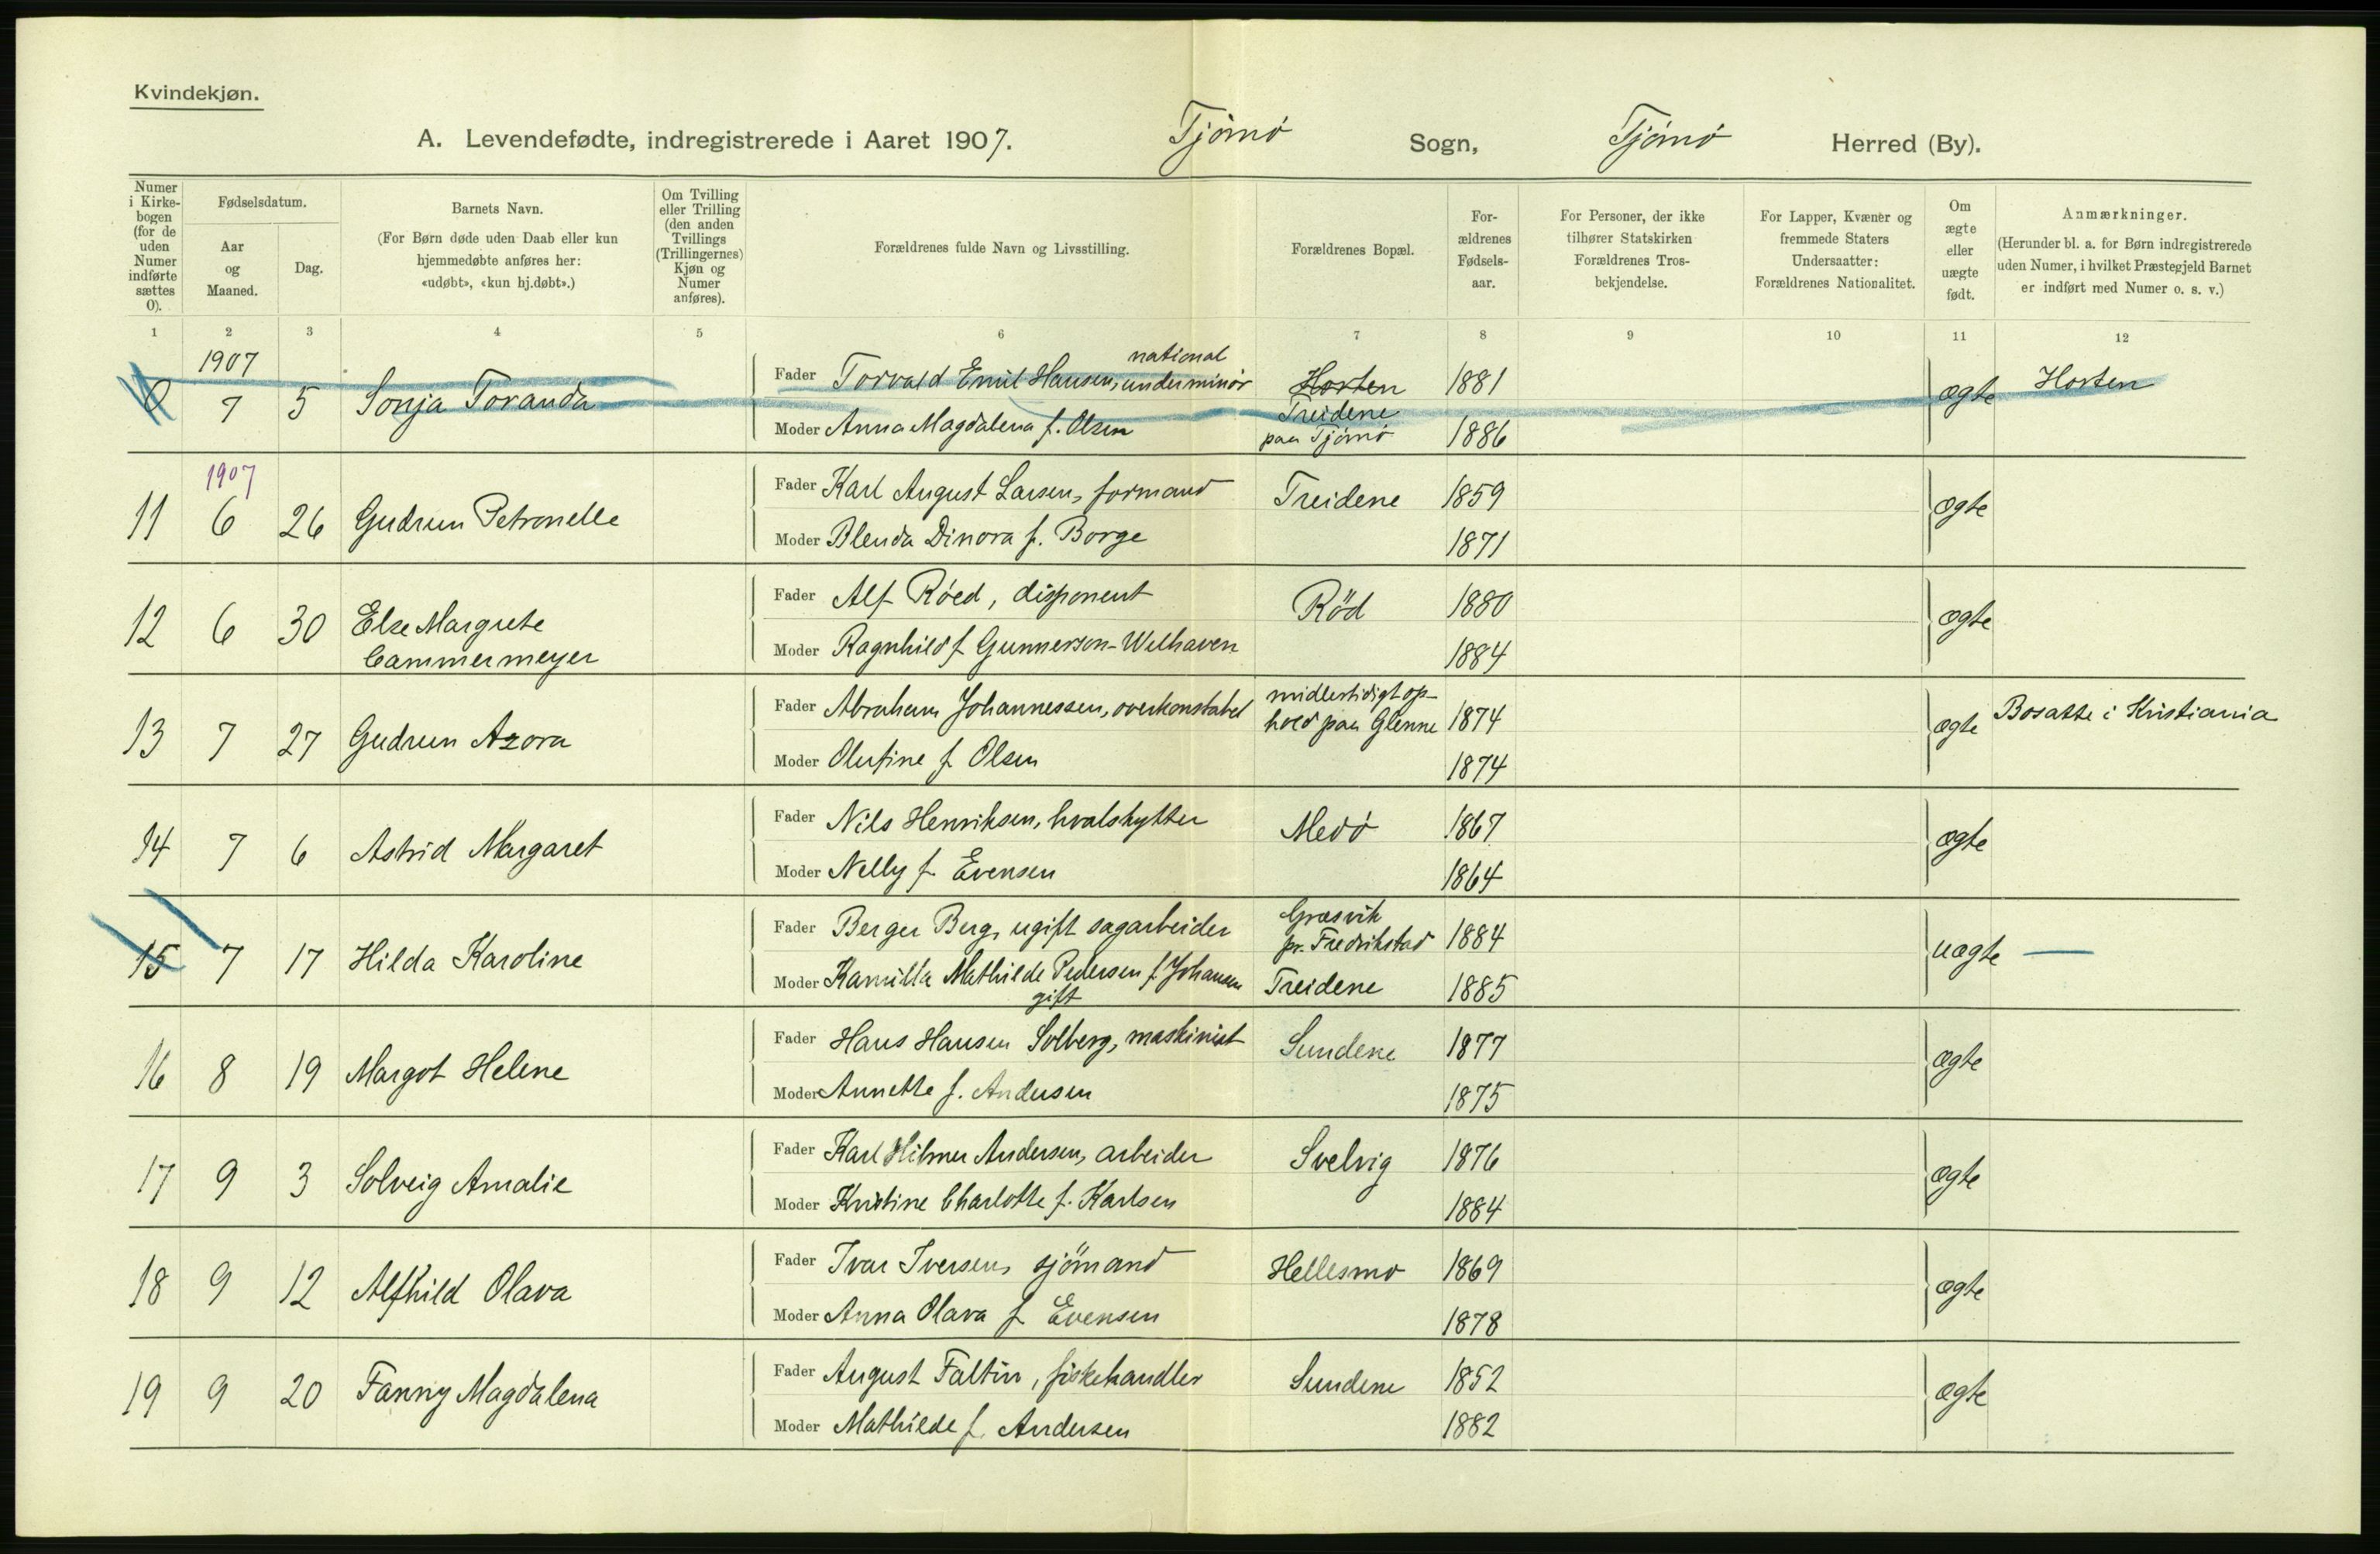 Kvindekjøn.
A. Levendefødte, indregistrerede i Aaret 1907. Tjømø Sogn, Tjømø Herred (By).
Numer i Kirke-bogen (for de uden Numer indførte sættes 0).
Fødselsdatum.
Aar og Maaned.
Dag.
Barnets Navn.
(For Børn døde uden Daab eller kun hjemmedøbte anføres her: «udøbt», «kun hj.døbt».)
Om Tvilling eller Trilling (den anden Tvillings (Trillingernes) Kjøn og Numer anføres).
Forældrenes fulde Navn og Livsstilling.
Forældrenes Bopæl.
For-ældrenes Fødsels-aar.
For Personer, der ikke tilhører Statskirken Forældrenes Tros-bekjendelse.
For Lapper, Kvæner og fremmede Staters Undersaatter: Forældrenes Nationalitet.
Om ægte eller uægte født.
Anmærkninger.
(Herunder bl. a. for Børn indregistrerede uden Numer, i hvilket Præstegjeld Barnet er indført med Numer o. s. v.)
1 2 3 4 5 6 7 8 9 10 11 12
1907 national
0 7 5 Sonja Toranda Fader Torvald Emil Hansen, underminør Horten 1881 ægte Horten
Moder Anna Magdalena f. Olsen Treidene paa Tjømø 1886
1907
11 6 26 Gudrun Petronelle Fader Karl August Larsen, formand Treidene 1859 ægte
Moder Blenda Dinora f. Borge 1871
12 6 30 Else Margrete Cammermeyer Fader Alf Røed, disponent Röd 1880 ægte
Moder Ragnhild f Gunnerson-Welhaven 1884
13 7 27 Gudrun Azora Fader Abraham Johannessen, overkonstabel midlertidigt op-hold paa Glenne 1874 ægte Bosatte i Kristiania
Moder Olufine f Olsen 1874
14 7 6 Astrid Margaret Fader Nils Henriksen, hvalskytter Medø 1867 ægte
Moder Nelly f. Evensen 1864
15 7 17 Hilda Karoline Fader Berger Berg, ugift sagarbeider Græsvik pr. Fredrikstad 1884 uægte —
Moder Kamilla Mathilde Pedersen f. Johansen gift Treidene 1885
16 8 19 Margot Helene Fader Hans Hansen Solberg, maskinist Sundene 1877 ægte
Moder Annette f. Andersen 1875
17 9 3 Solveig Amalie Fader Karl Hilmer Andersen, arbeider Svelvig 1876 ægte
Moder Kristine Charlotte f. Karlsen 1884
18 9 12 Alfhild Olava Fader Ivar Iversen, sjömand Hellesmo 1869 ægte
Moder Anna Olava f Evensen 1878
19 9 20 Fanny Magdalena Fader August Faltin, fiskehandler Sundene 1852 ægte
Moder Mathilde f. Andersen 1882